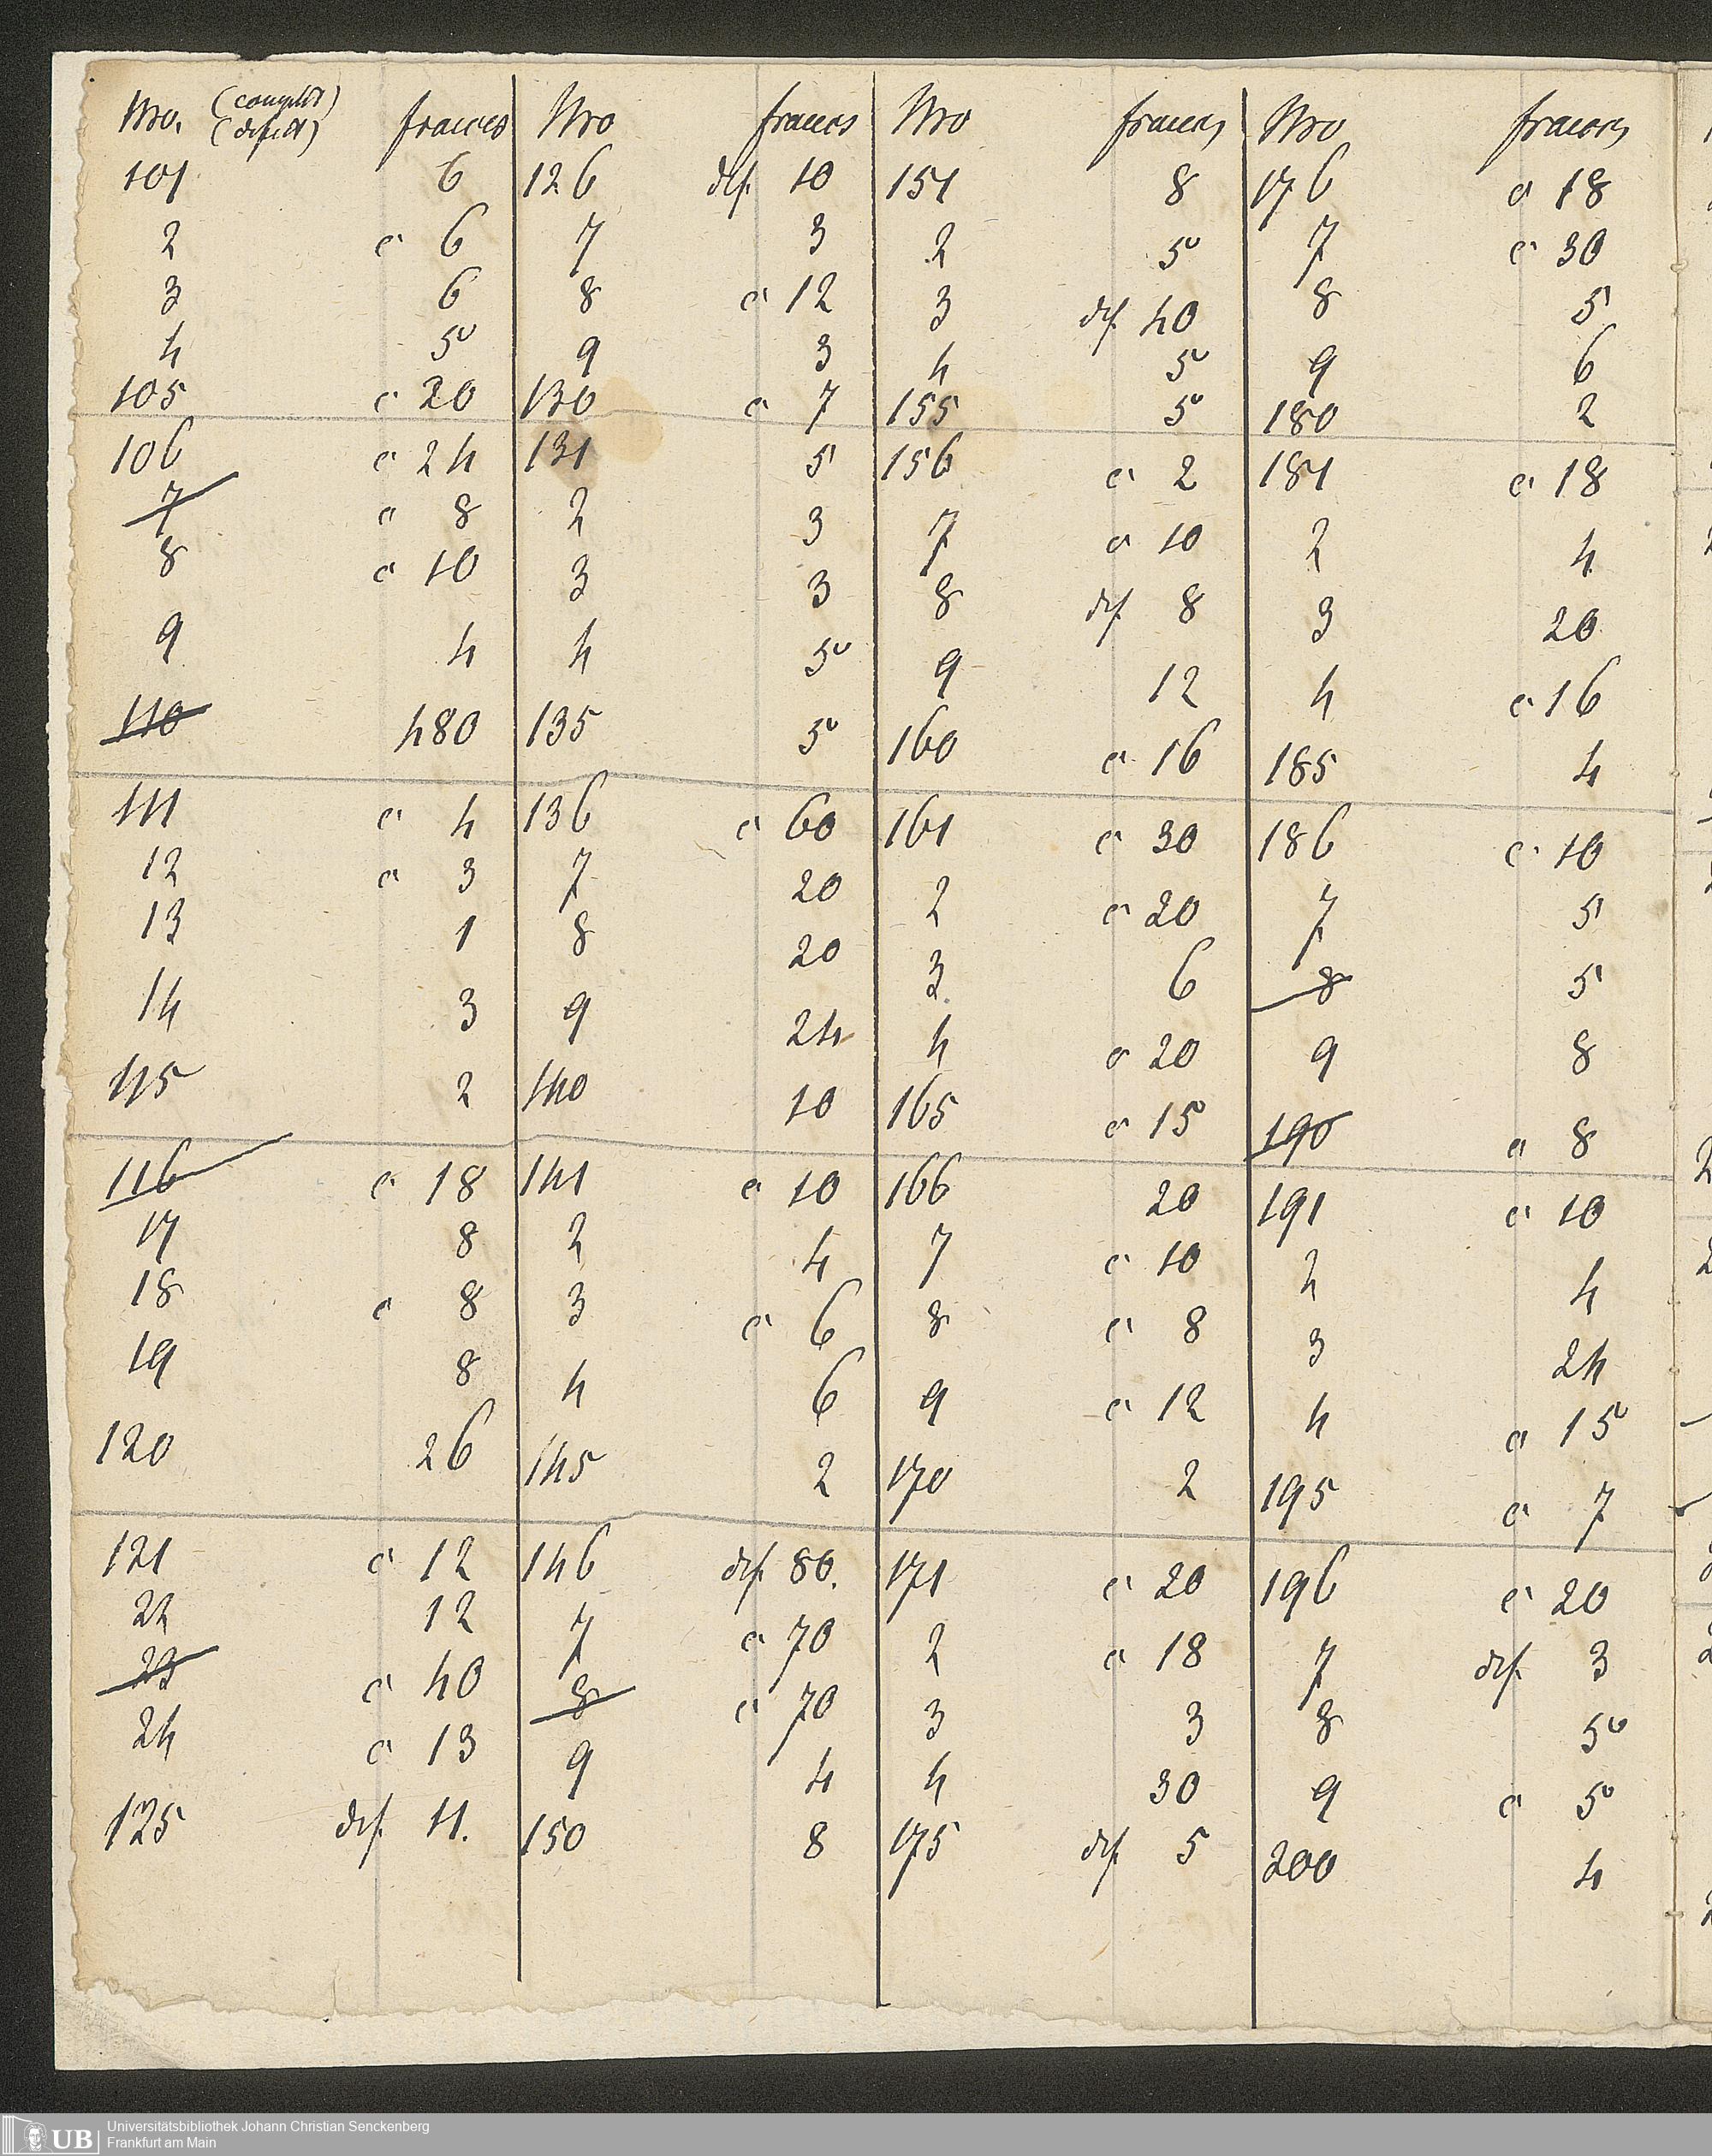 Nro. (complet) (defect) francs Nro francs Nro francs Nro francs
101 6 126 def. 10 151 8 176 c 18
2 c 6 7 3 2 5 7 c 30
3 6 8 c 12 3 def. 40 8 5
4 5 9 3 4 5 9 6
105 c 20 130 c 7 155 5 180 2
106 c 24 131 5 156 c 2 181 c 18
7 c 8 2 3 7 c 10 2 4
8 c 10 3 3 8 def. 8 3 20
9 4 4 5 9 12 4 c 16
110 480 135 5 160 c 16 185 4
111 c 4 136 c 60 161 c 30 186 c 10
12 c 3 7 20 2 c 20 7 5
13 1 8 20 3 6 8 5
14 3 9 24 4 c 20 9 8
115 2 140 10 165 c 15 190 c 8
116 c 18 141 c 10 166 20 191 c 10
17 8 2 4 7 c 10 2 4
18 c 8 3 c 6 8 c 8 3 24
19 8 4 6 9 c 12 4 c 15
120 26 145 2 170 2 195 c 7
121 c 12 146 def. 80. 171 c 20 196 c 20
22 12 7 c 70 2 c 18 7 def. 3
23 c 40 8 c 70 3 3 8 5
24 c 13 9 4 4 30 9 c 5
125 def. 11. 150 8 175 def. 5 200 4
UB Universitätsbibliothek Johann Christian Senckenberg
Frankfurt am Main